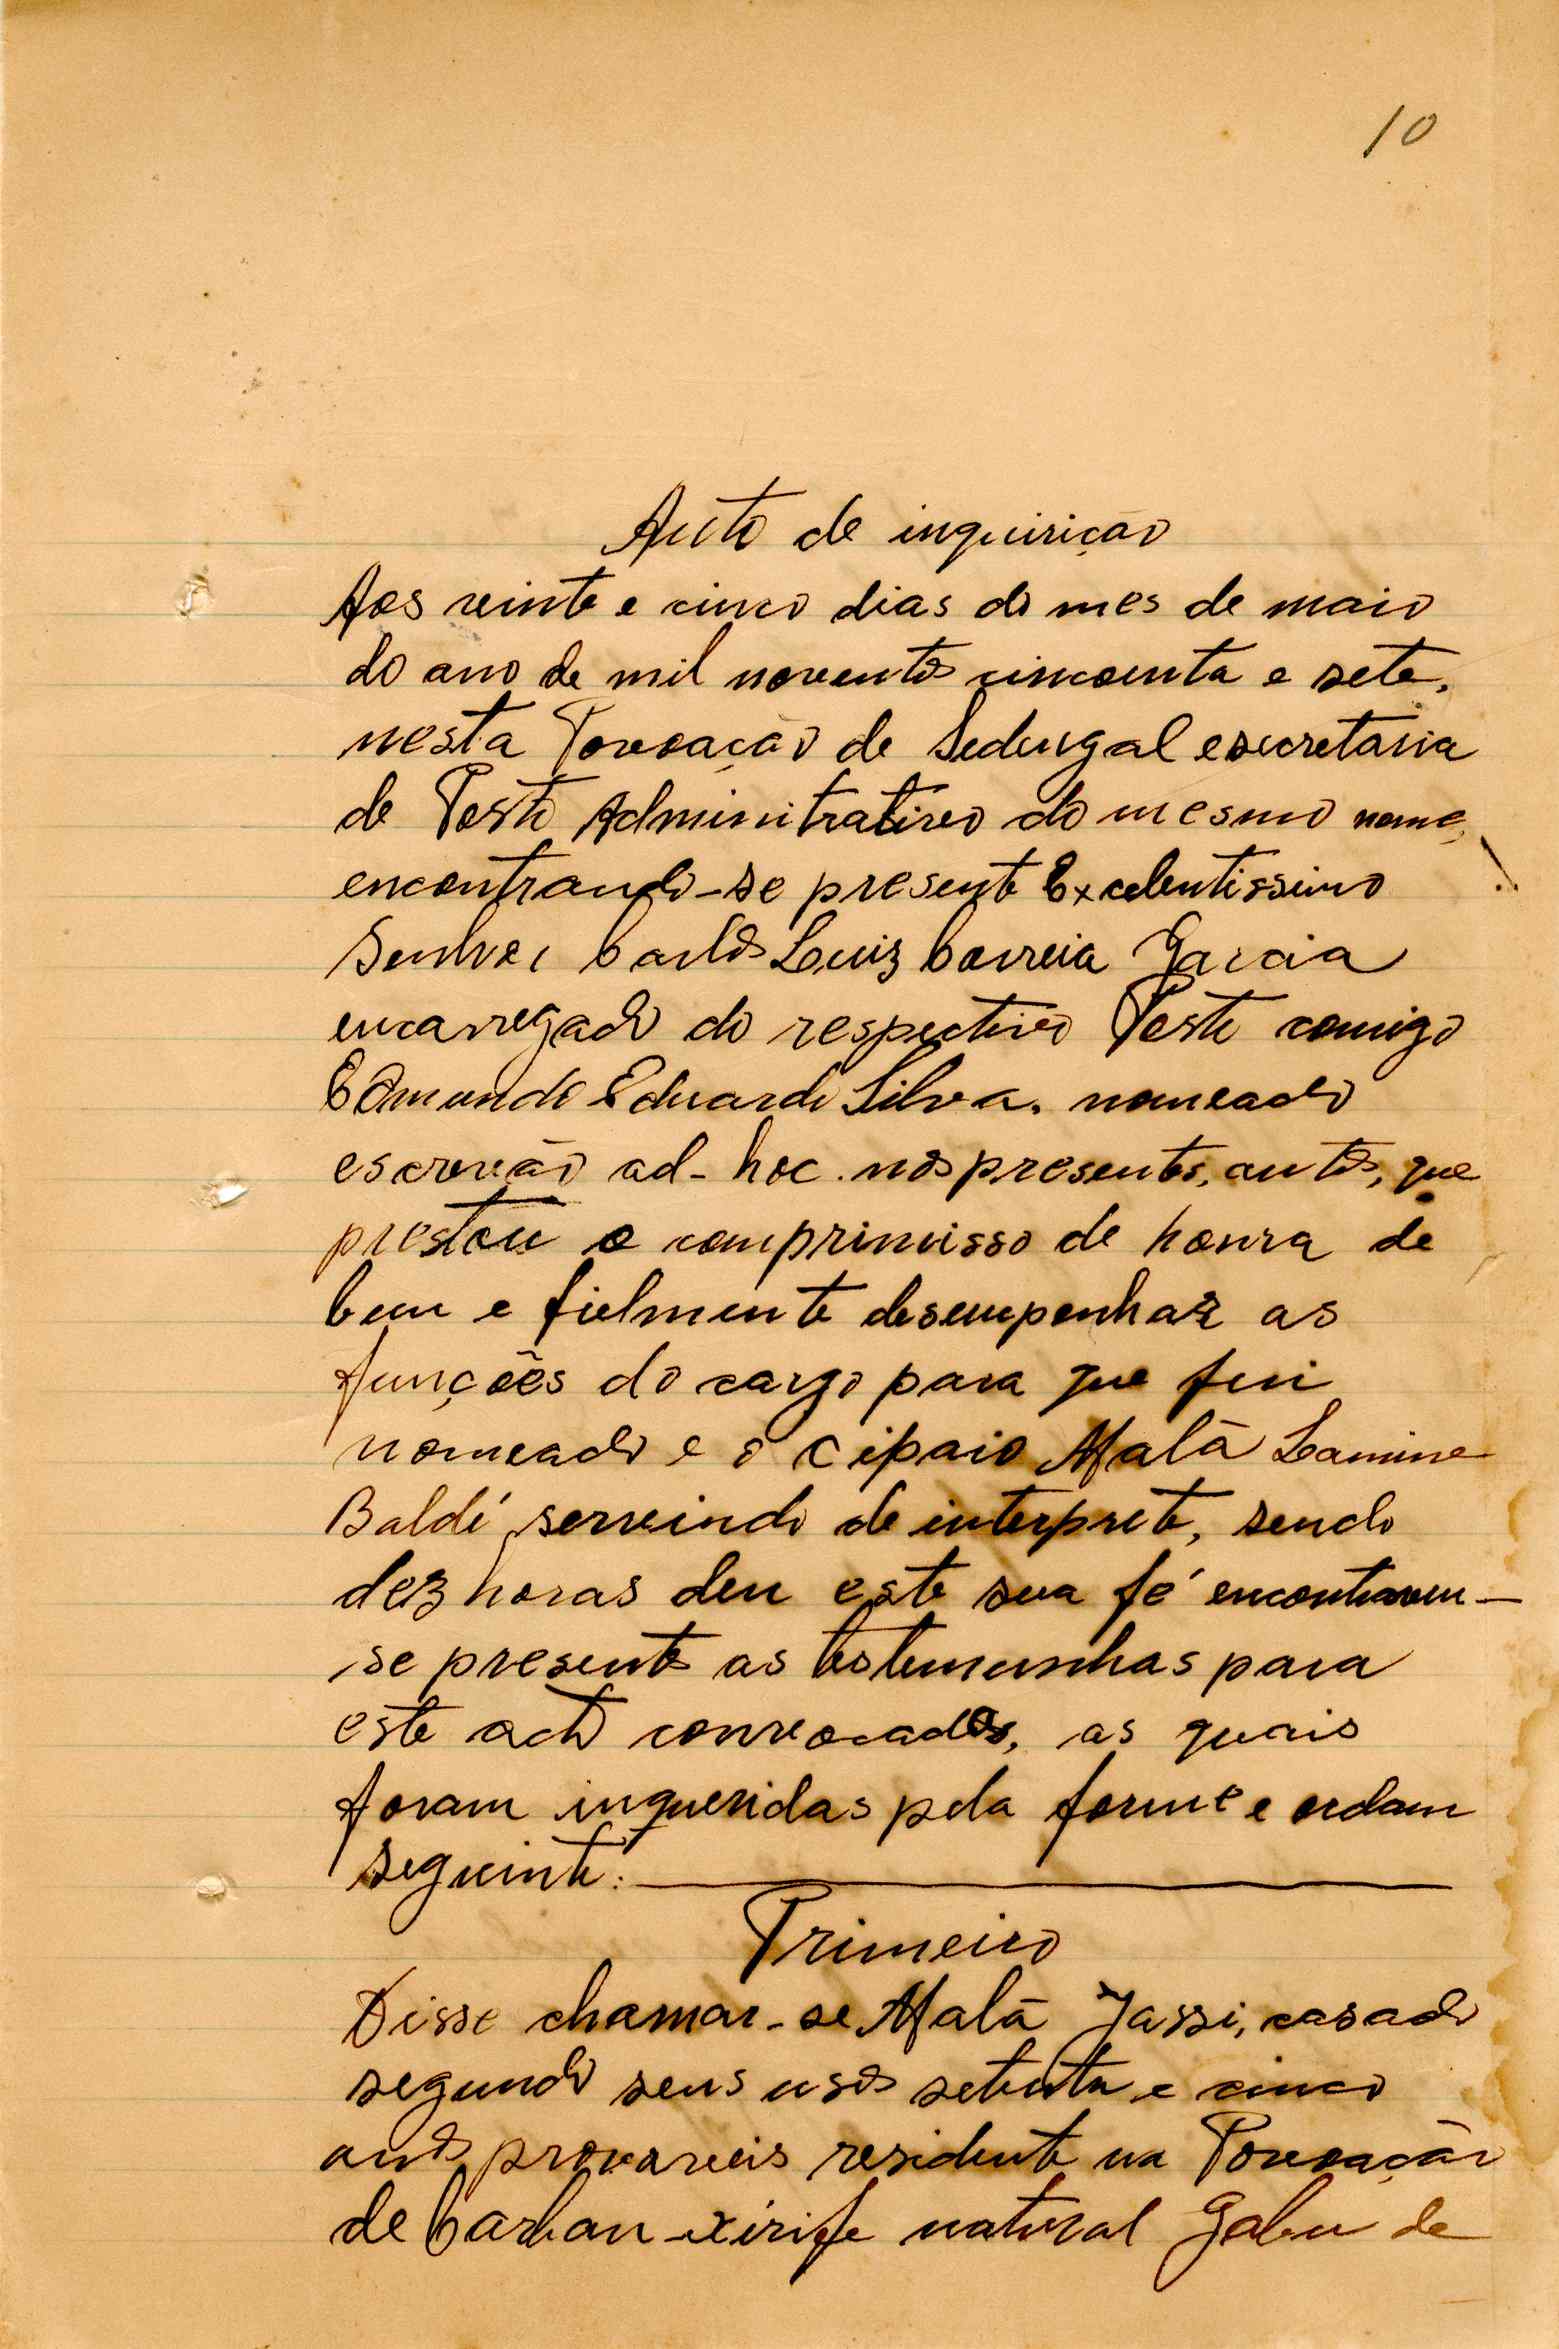 10
Auto de inquirição
Aos vinte e cinco dias do mes de maio
do ano de mil noventos cincoenta e sete,
nesta Povoação de Sedengal e secretaria
de Posto Adminitrativo do mesmo nome,
encontrando-se presente Excelentissimo
Senhor Carlos Luiz Correia Garcia
encarregado do respectivo Posto comigo
Edmundo Eduardo Silva, nomeado
escrevão ad-hoc nos presentes, autos, que
prestou o comprimisso de honra de
bem e fielmente desempenhar as
funções do cargo para que fui
nomeado e o cipaio Malã Lamine
Baldé servindo de interprete, sendo
dez horas deu este sua fé encontravem-
se presente as testemunhas para
este acto convocados, as quais
foram inqueridas pela forme e ordam
seguinte:
Primeiro
Disse chamar-se Malã Jassi, casado
segundo seus usos setenta e cinco
anos provaveis residente na Povoação
de Barban-xirife natural Gabu de